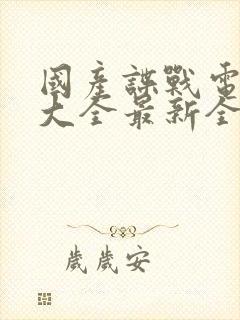 國產諜戰電
大全最新全
歲歲安